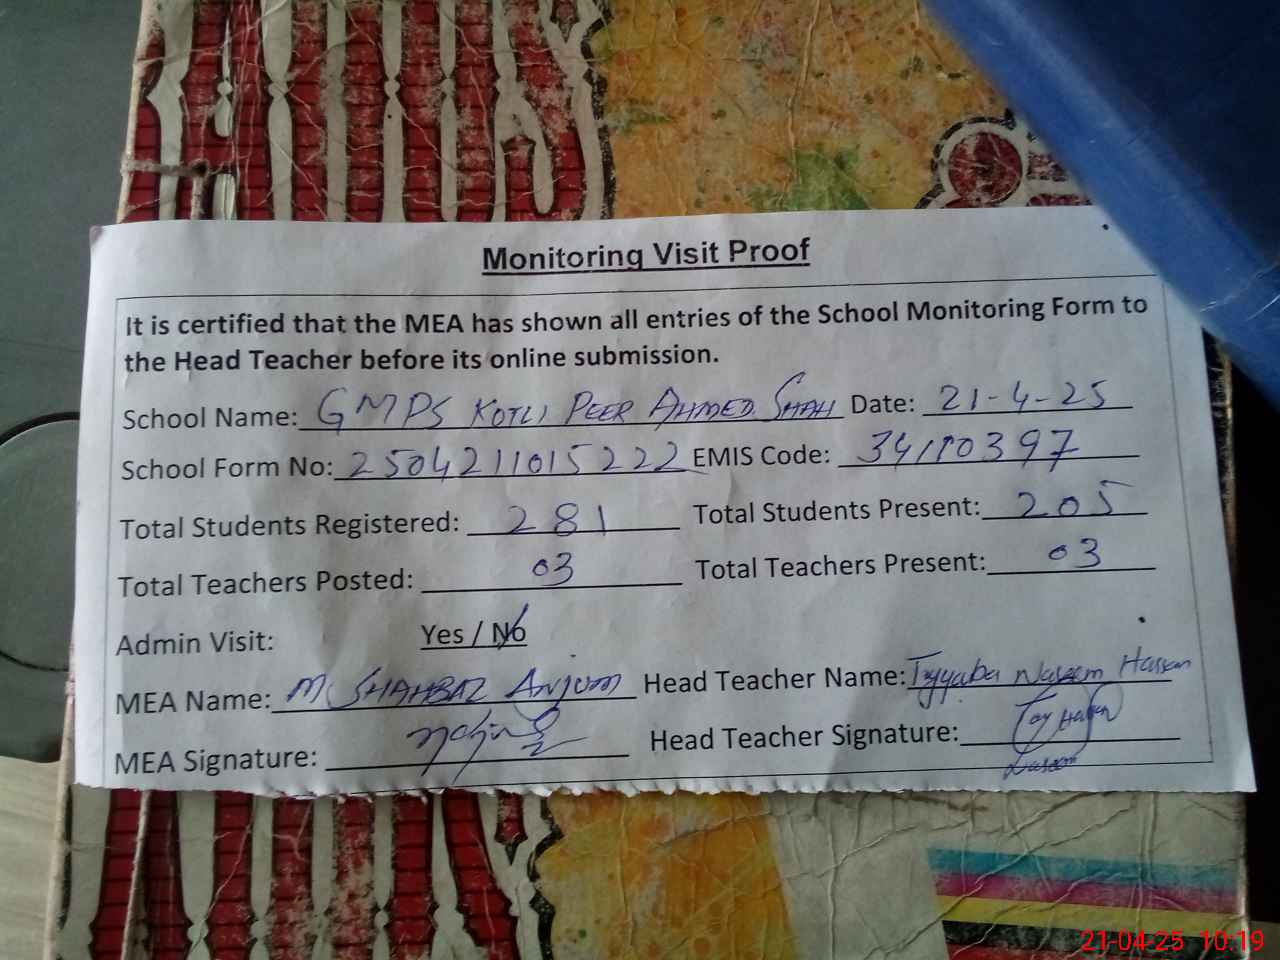 Monitoring Visit Proof
It is certified that the MEA has shown all entries of the School Monitoring Form to
the Head Teacher before its online submission.
School Name: GMPS KOTLI PEER AHMED SHAH Date: 21-4-25
School Form No: 2504211015222 EMIS Code: 34110397
Total Students Registered: 281 Total Students Present: 205
Total Teachers Posted: 03 Total Teachers Present: 03
Admin Visit: Yes / No
MEA Name: M SHAHBAZ ANJUM Head Teacher Name: Tayyaba Naseem Hassan
MEA Signature: Head Teacher Signature: Tay Hassan
Naseem
21-04-25 10:19